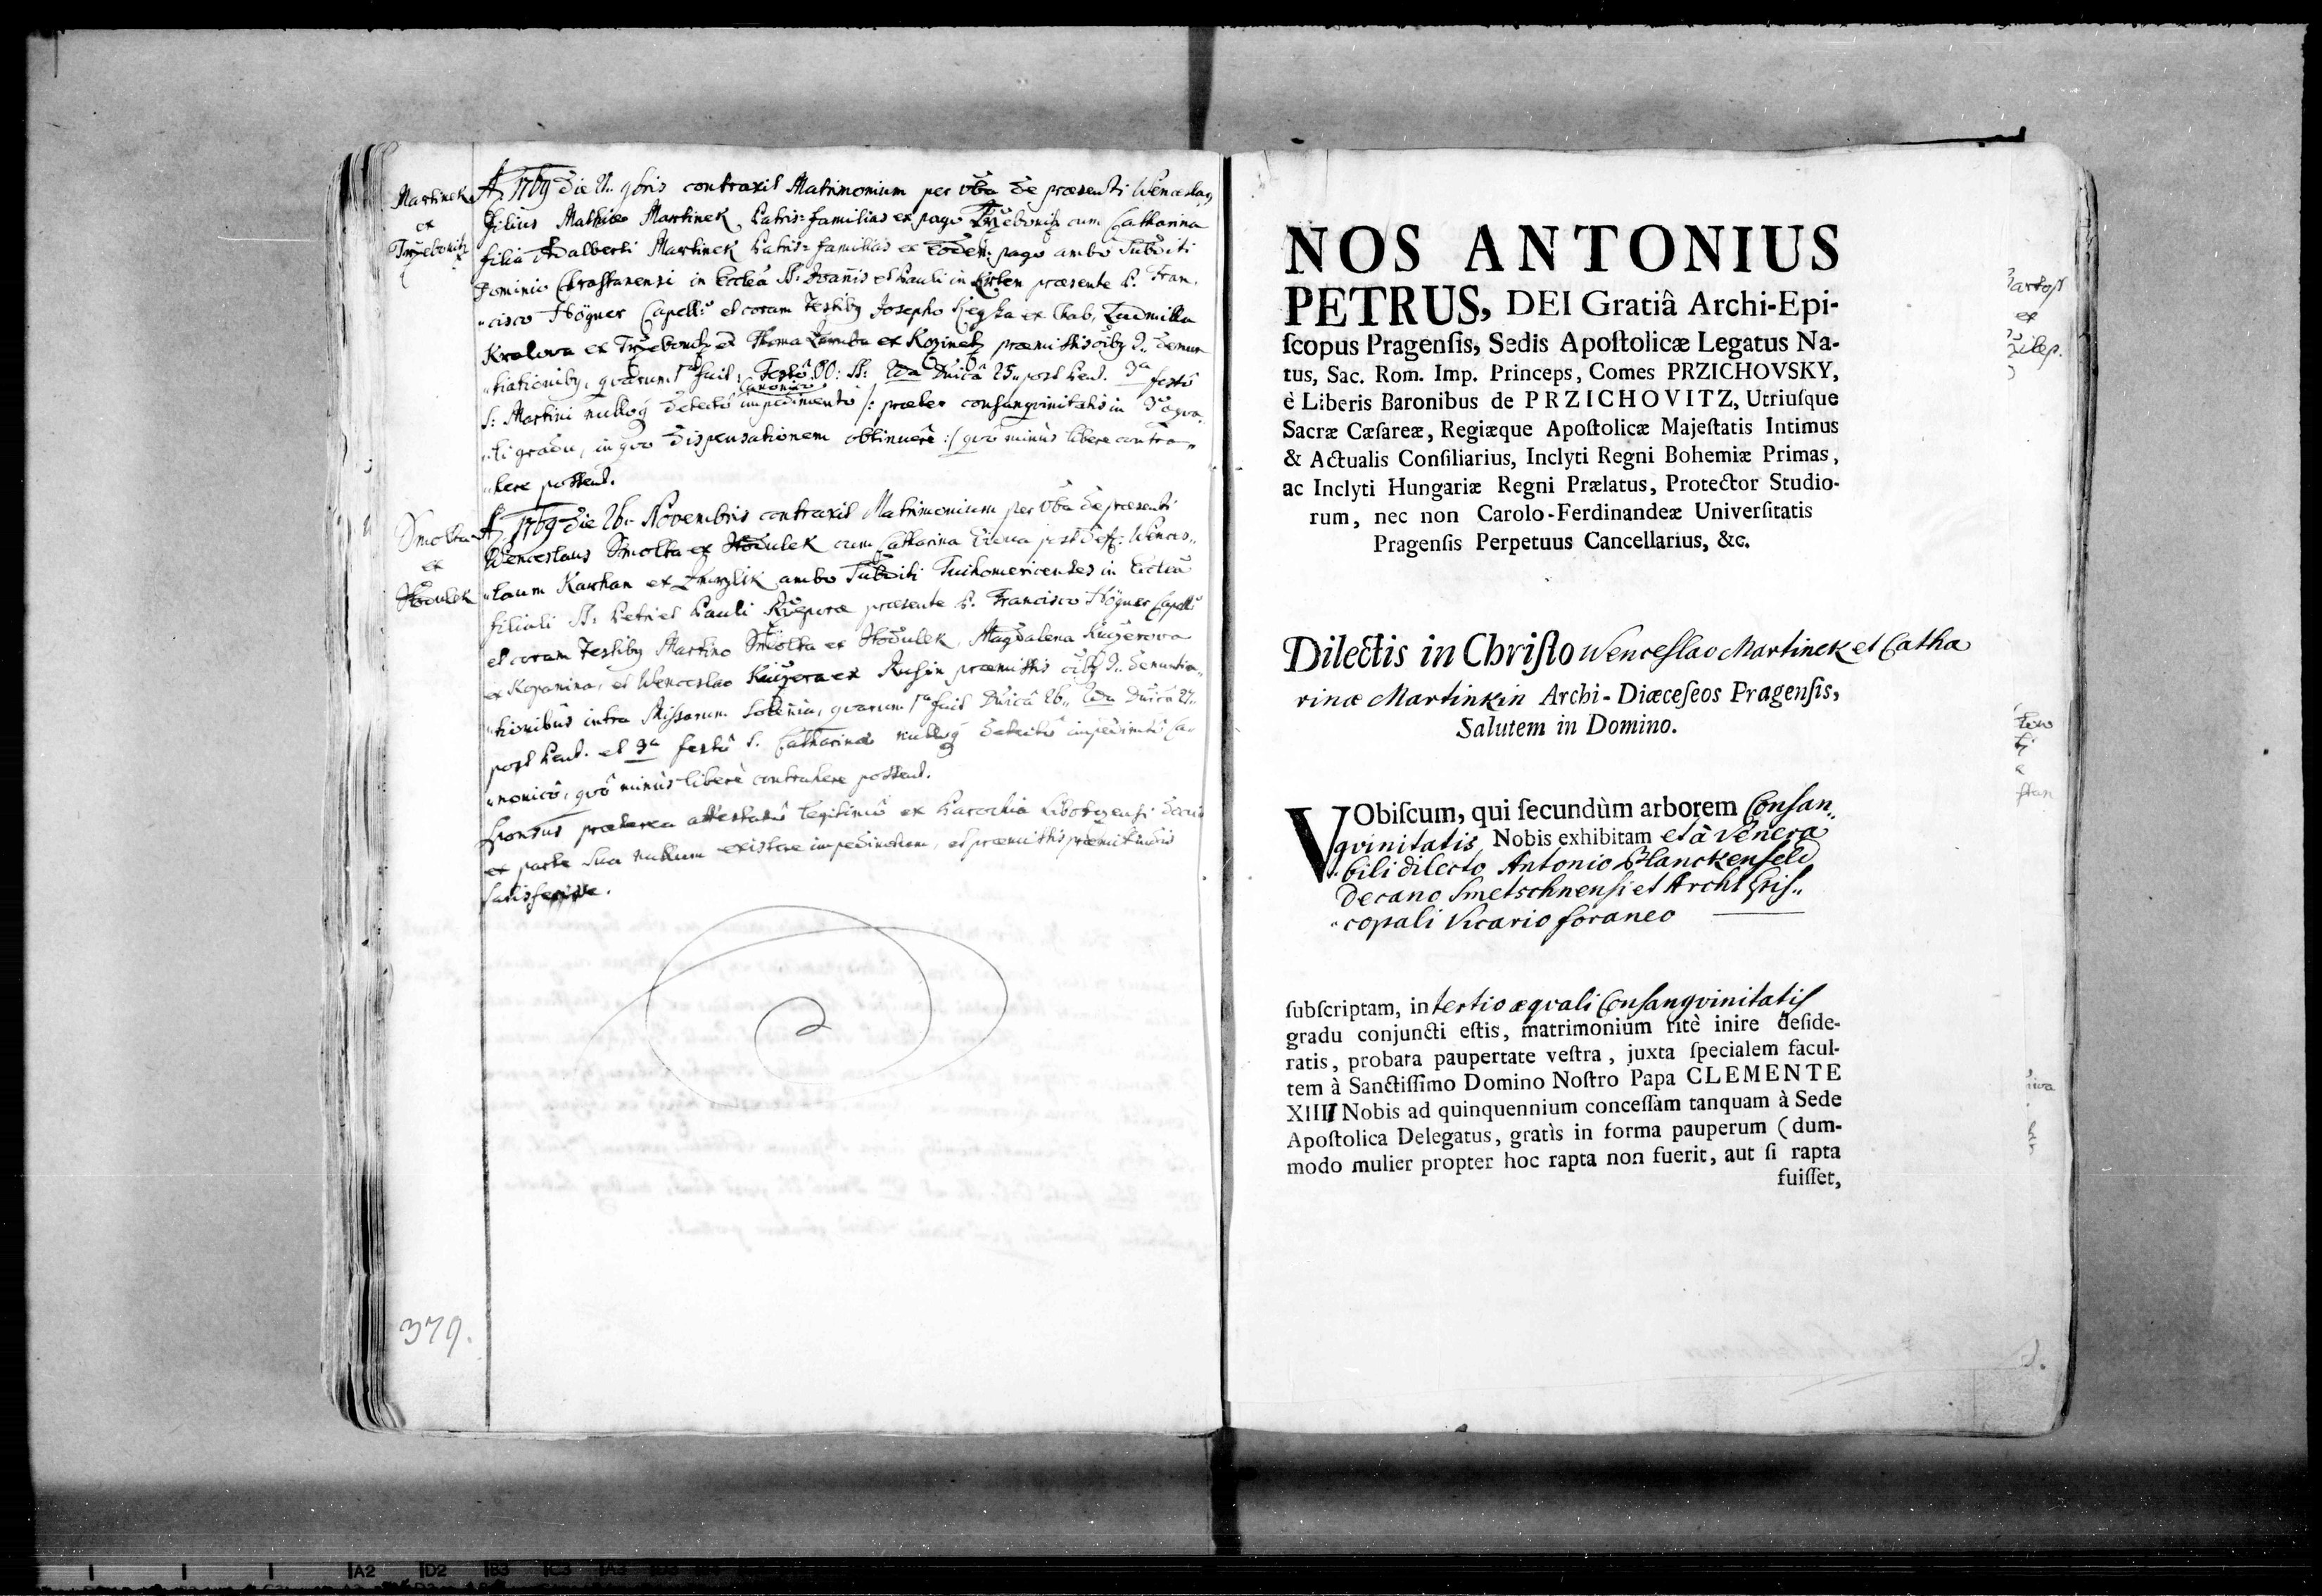 Martinek
ex
Trzebonitz
A 1769 Die 21. 9bris contraxit Matrimonium per vba de præsenti Wenceslaus
filius Mathiæ Martinek Patris-familias ex pago Trzebonitz cum Catharina
filia Adalberti Martinek Patris-familias ex eodem pago ambo Subditi
Dominio Chrastanensi in Ecclea SS. Joannis et Pauli in præsente P. Fran,
"cisco Högner Capell: et coram Testiby Josepho ex Chab, Ludmilla
Kralova ex Trzebonitz et Thoma ex Kozinetz præmissis 3. denun
"tiationiby, quarum 1a fuit Festo OO: SS: 2da Dnica 25. post Pent. 3a festo
S: Martini nulloq detecto Canonico impedimento /: præter consanguinitatis in 3o æqua
"li gradu, in quo dispensationem obtinuere :/ quo minus libere contra,,
"here possent.
Smolka
ex
Hodulek
A 1769 Die 26. Novembris contraxit Matrimonium per vba de præsenti
Wenceslaus Smolka ex Hodulek cum Catharina Vidua post def: Wences,,
"laum Karhan ex ambo Subditi Tuchomericenses in Ecclea
filiali SS. Petri et Pauli præsente P. Francisco Högner Capell
et coram Testiby Martino Smolka ex Hodulek, Magdalena Kuczerova
ex Kopanina, et Wenceslao Kuczera ex Rusin præmissis 3. denuntia,,
"tionibus intra Missarum Solenia, quarum 1a fuit Dnica 26,, 2da Dnica 27,,
post Pent. et 3a festo S. Catharinæ nulloq detecto impedimto Ca,,
"nonico, quo minus libere contrahere possent.
Sponsus præterea attestatu legitimo ex Parochia docuit
ex parte sua nullum existere impedimentum, et præmissis præmittendis
satisfecisse.
379.
NOS ANTONIUS
PETRUS, DEI Gratiâ Archi-Epi-
ſcopus Pragenſis, Sedis Apoſtolicæ Legatus Na-
tus, Sac. Rom. Imp. Princeps, Comes PRZICHOVSKY,
è Liberis Baronibus de PRZICHOVITZ, Utriuſque
Sacræ Cæſareæ, Regiæque Apoſtolicæ Majeſtatis Intimus
& Actualis Conſiliarius, Inclyti Regni Bohemiæ Primas,
ac Inclyti Hungariæ Regni Prælatus, Protector Studio-
rum, nec non Carolo-Ferdinandeæ Univerſitatis
Pragenſis Perpetuus Cancellarius, &c.
Dilectis in Chriſto Wenceslao Martinek et Catha
rinæ Martinkin Archi-Diœceſeos Pragenſis,
Salutem in Domino.
VObiſcum, qui ſecundùm arborem Consan,,
qvinitatis, Nobis exhibitam et à Venera
bili dilecto Antonio Blanckenfeld
Decano Smetschnensi et Archi Epis,,
"copali Vicario foraneo
ſubſcriptam, in tertio æqvali Consangvinitatis
gradu conjuncti eſtis, matrimonium ritè inire deſide-
ratis, probata paupertate veſtra, juxta ſpecialem facul-
tem à Sanctiſſimo Domino Noſtro Papa CLEMENTE
XIIII Nobis ad quinquennium conceſſam tanquam à Sede
Apoſtolica Delegatus, gratìs in forma pauperum (dum-
modo mulier propter hoc rapta non fuerit, aut ſi rapta
fuiſſet,